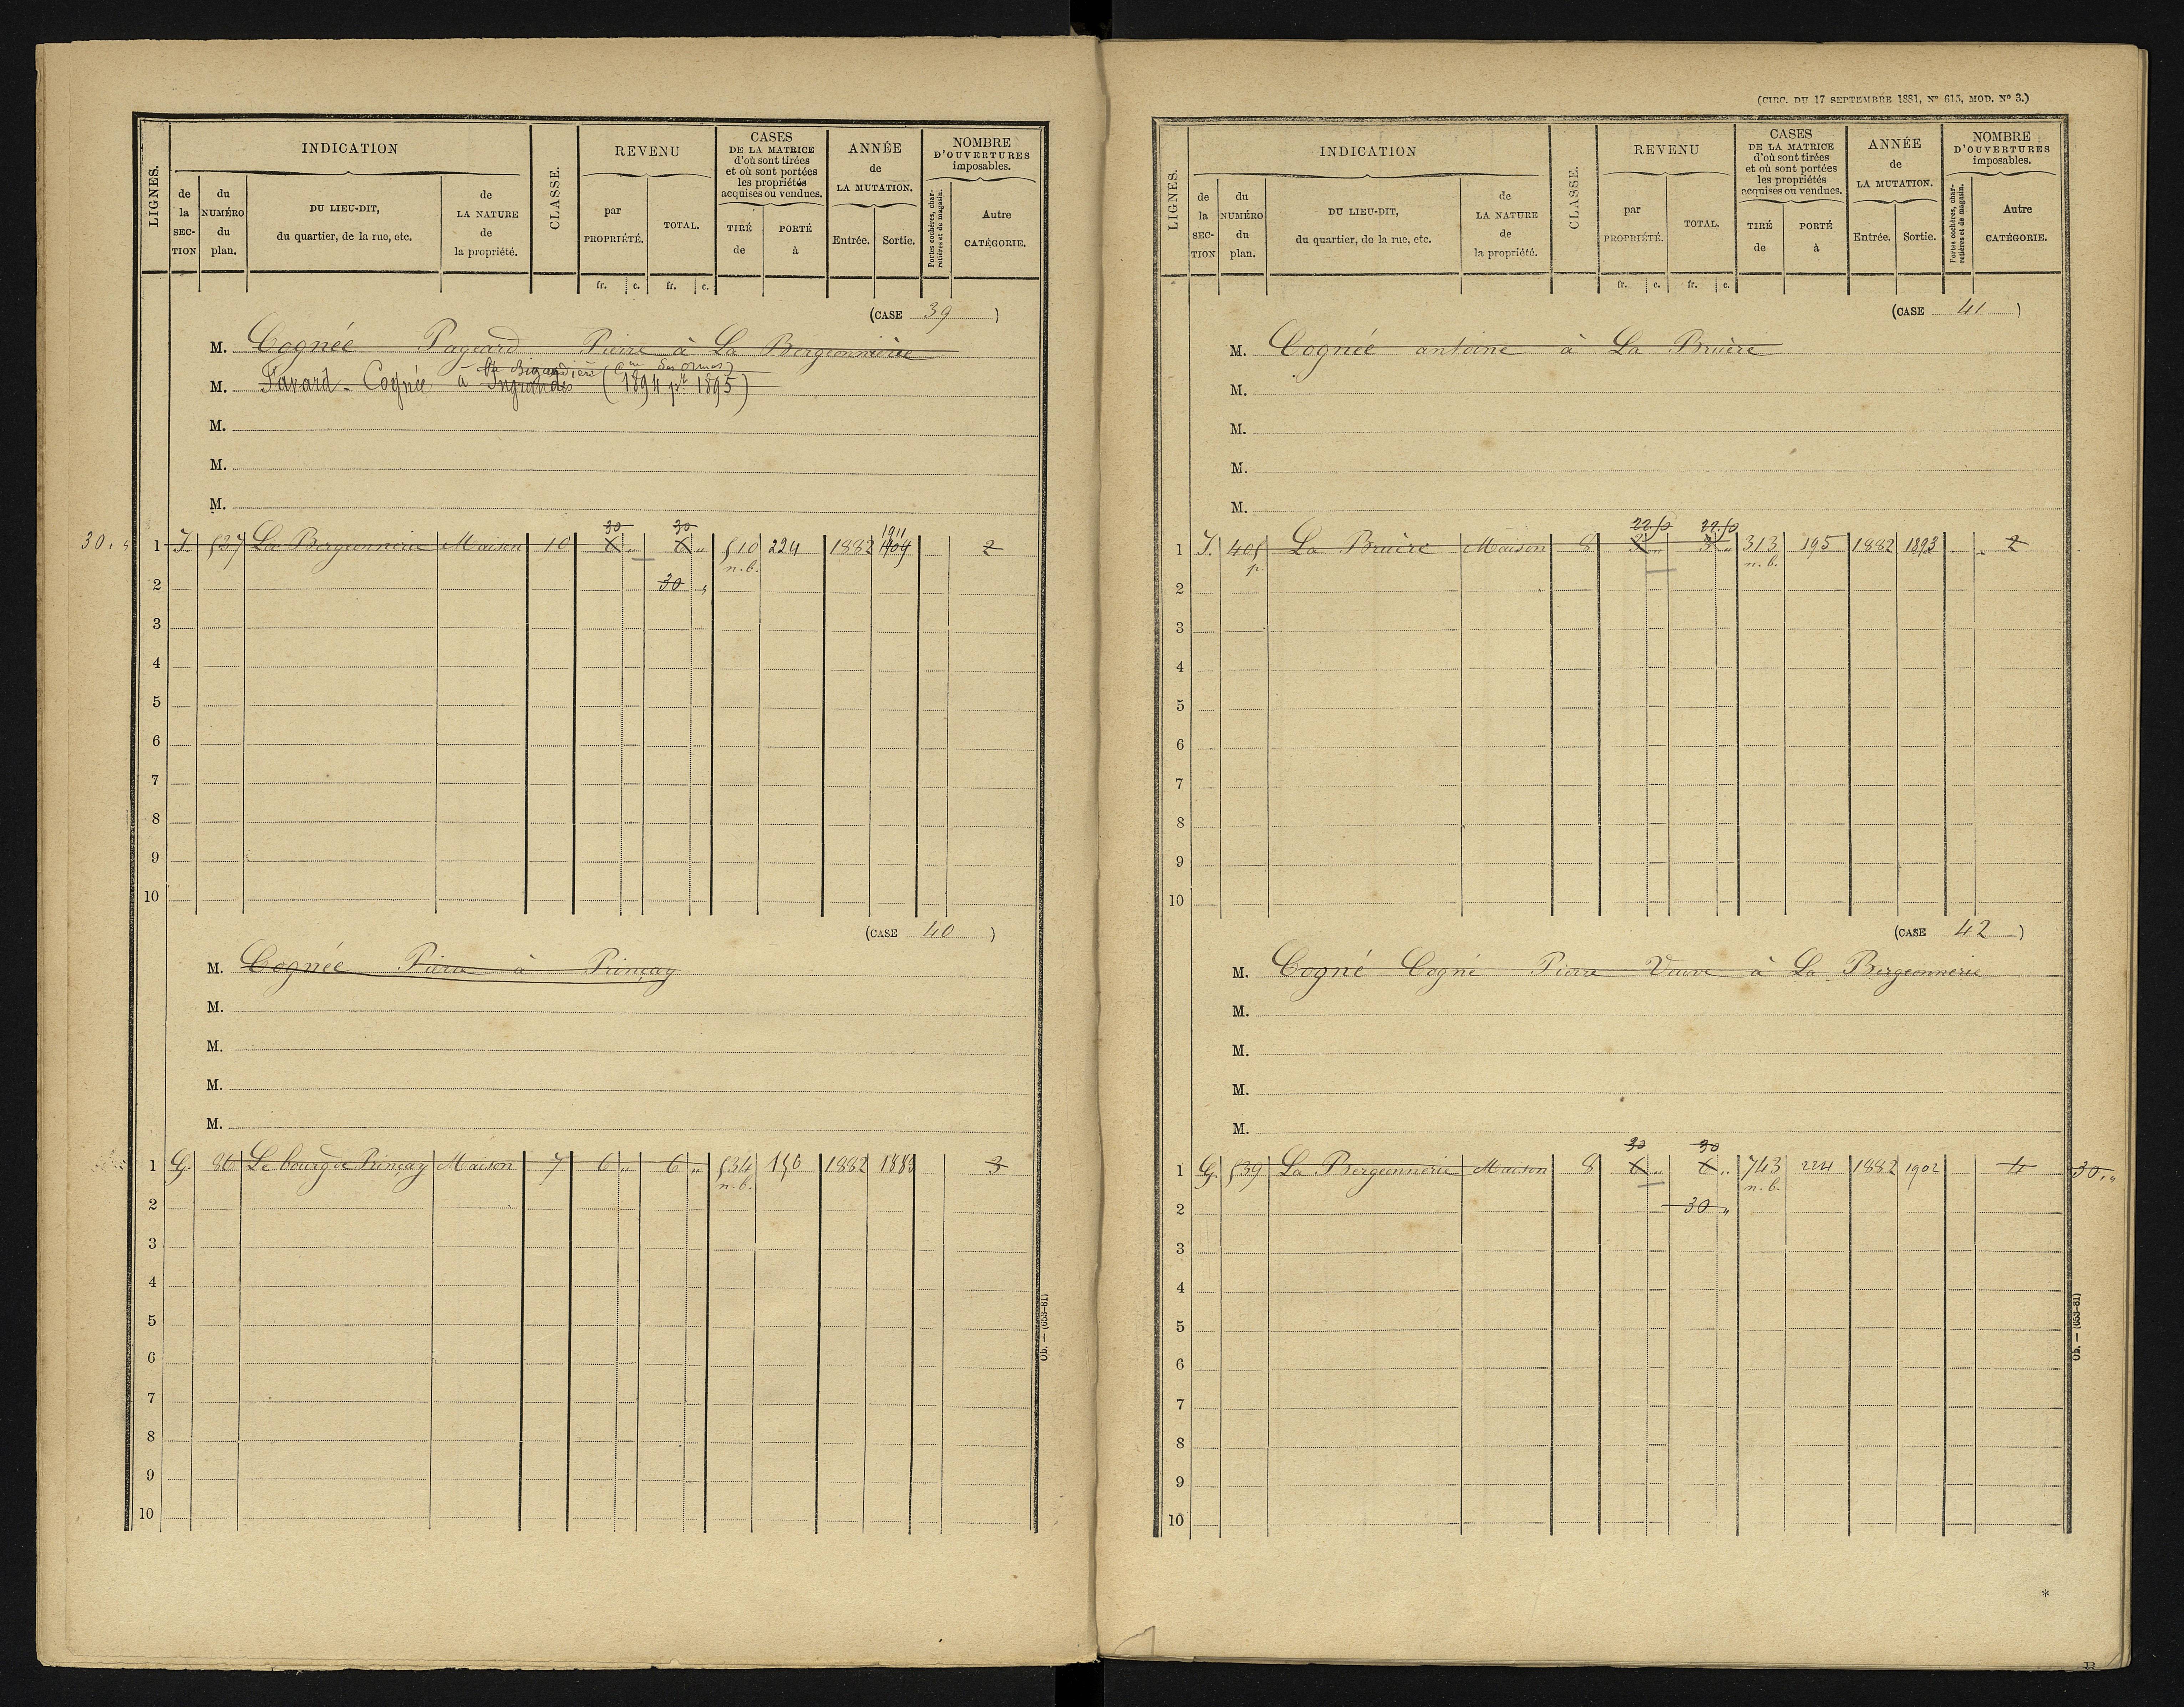 LIGNES.
INDICATION
de la SEC-TION
du NUMÉRO du plan.
DU LIEU-DIT, du quartier, de la rue, etc.
de LA NATURE de la propriété.
CLASSE.
REVENU
par PROPRIÉTÉ.
TOTAL.
CASES DE LA MATRICE d'où sont tirées et où sont portées les propriétés acquises ou vendues.
TIRÉ de
PORTÉ à
ANNÉE de LA MUTATION.
Entrée.
Sortie.
NOMBRE D'OUVERTURES imposables.
Portes cochères, charretières et de magasin.
Autre CATÉGORIE.
fr. c. fr. c.
(CASE 39)
M. Cognée Pageard Pierre à La Bergeonnerie
La Bigaudière (Cne des Ormes)
M. Favard - Cognée à Ingrandes (1894 pt 1895)
M.
M.
M.
30 30 1911
30. " 1 I. 537 La Bergeonnerie Maison 10 6 " 6 " 510 224 1882 1909 2
n.b.
2 30 "
3
4
5
6
7
8
9
10
(CASE 40)
M. Cognée Pierre à Prinçay
M.
M.
M.
M.
1 G. 86 Le bourg de Prinçay Maison 7 6 " 6 " 534 156 1882 1883 3
n.b.
2
3
4
5
6
7
8
9
10
Ob. — (653-81)
(CIRC. DU 17 SEPTEMBRE 1881, N° 615, MOD. N° 3.)
LIGNES.
INDICATION
de la SEC-TION
du NUMÉRO du plan.
DU LIEU-DIT, du quartier, de la rue, etc.
de LA NATURE de la propriété.
CLASSE.
REVENU
par PROPRIÉTÉ.
TOTAL.
CASES DE LA MATRICE d'où sont tirées et où sont portées les propriétés acquises ou vendues.
TIRÉ de
PORTÉ à
ANNÉE de LA MUTATION.
Entrée.
Sortie.
NOMBRE D'OUVERTURES imposables.
Portes cochères, charretières et de magasin.
Autre CATÉGORIE.
fr. c. fr. c.
(CASE 41)
M. Cognée antoine à La Bruère
M.
M.
M.
M.
22.50 22.50
1 I. 405 La Bruère Maison 8 3 " 3 " 313 195 1882 1893 2
p. n.b.
2
3
4
5
6
7
8
9
10
(CASE 42)
M. Cogné Cogné Pierre Veuve à La Bergeonnerie
M.
M.
M.
M.
30 30
1 G. 539 La Bergeonnerie Maison 8 6 " 6 " 743 224 1882 1902 4 30. "
n.b.
2 30 "
3
4
5
6
7
8
9
10
Ob. — (653-81)
*